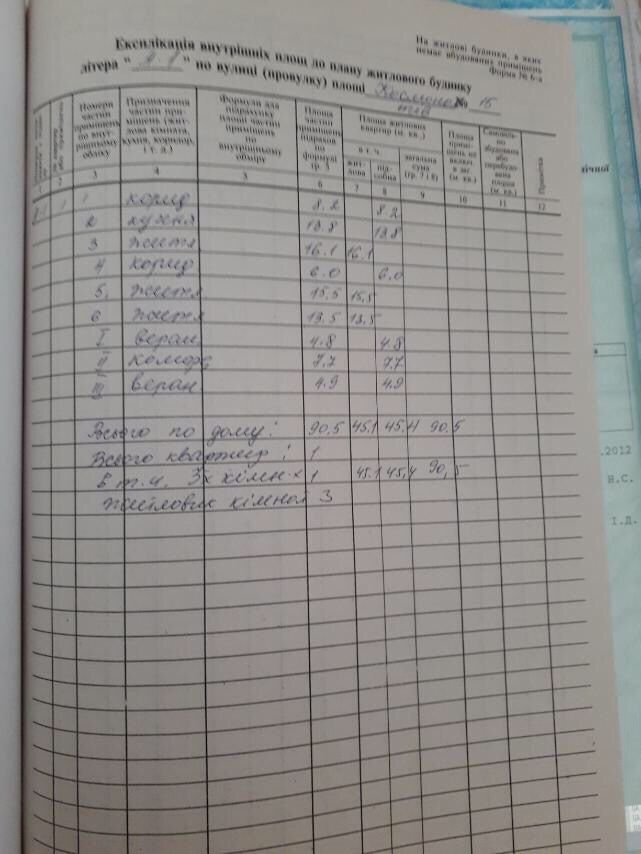 На житлові будинки, в яких
немає вбудованих приміщень
форма № 6-а
Експлікація внутрішніх площ до плану житлового будинку
літера " " по вулиці (провулку) площі № 15
Номери частин приміщень по внутрішньому обміру
Призначення частин приміщень (житлова кімната, кухня, коридор, і т. д.)
Формули для підрахунку площі частин приміщень по внутрішньому обміру
Площа частин приміщень підрахов. по формулі гр. 5
Площа житлових квартир (м. кв.)
в т. ч.
житлова
підсобна
загальна сума (гр. 7 і 8)
Площа приміщень не включ. в заг. (м. кв.)
Самовільно збудована або перебудована площа (м. кв.)
Примітка
3 4 5 6 7 8 9 10 11 12
1 1 корид 8.2 8.2
2 кухня 13.8 13.8
3 житл 16.1 16.1
4 корид 6.0 6.0
5. житл 15,5 15,5
6 житл 13,5 13,5
I веран 4.8 4.8
II комора 7.7 7.7
III веран 4.9 4.9
Всього по дому: 90,5 45.1 45.4 90.5
Всього квартир: 1
в т.ч. 3х кімн-х 1 45.1 45,4 90,5
житлових кімнат 3
.2012
Н.С.
І.Д.